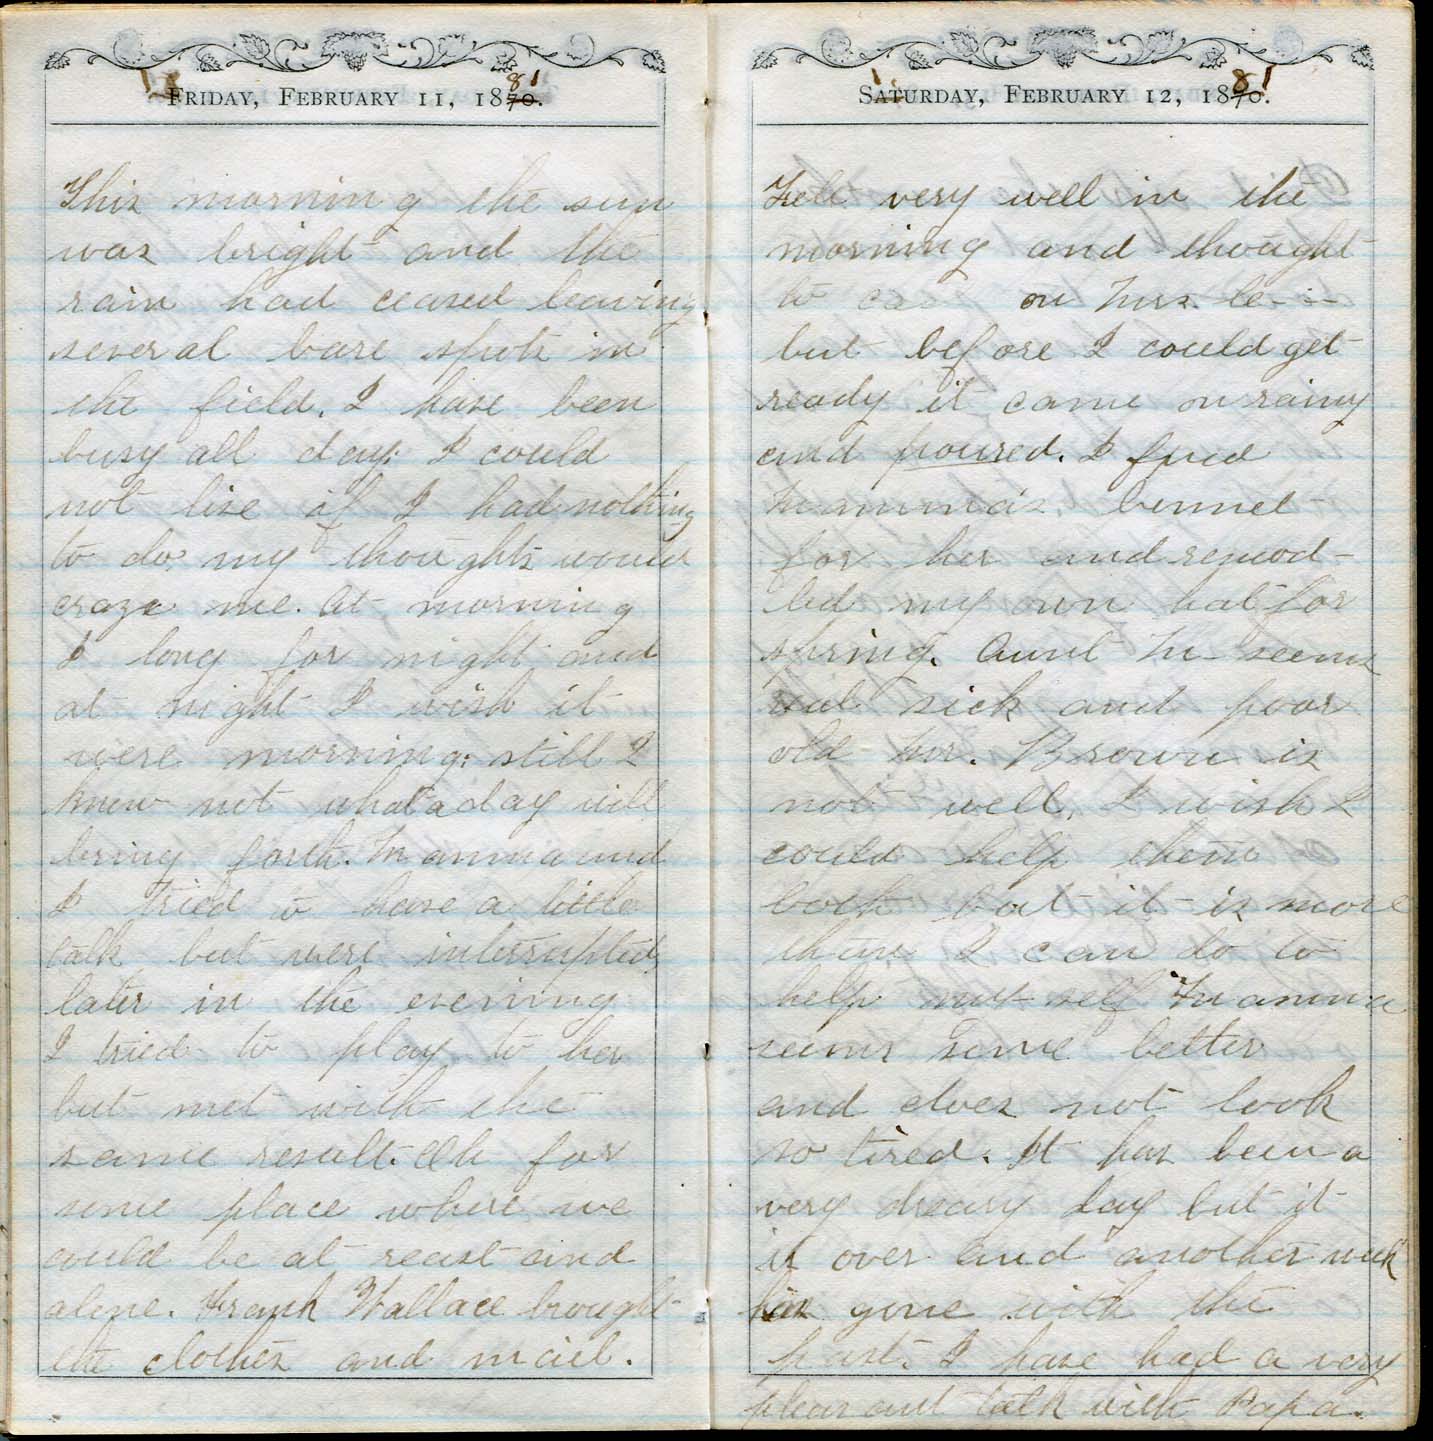 Friday, February 11, 1881.
This morning the sun
was bright and the
rain had ceased leaving
several bare spots in
the field. I have been
busy all day. I could
not live if I had nothing
to do, my thoughts would
craze me. At morning
I long for night and
at night I wish it
were morning: still I
know not what a day will
bring forth. Mamma and
I tried to have a little
talk but were interrupted,
later in the evening
I tried to play to her
but met with the
same result. Oh for
some place where we
could be at reast and
alone. Frank Wallace brought
the clothes and mail.
Saturday, February 12, 1881.
Felt very well in the
morning and thought
to on Mrs.
but before I could get
ready it came on rainy
and poured. I fixed
Mamma's bonnet
for her and remod-
led my own hat for
spring. Aunt M- seems
real sick and poor
old Mr. Brown is
not well. I wish I
could help them
both but it is more
than I can do to
help my self Mamma
seems some better
and does not look
so tired. It has been a
very dreary day but it
is over and another week
has gone with the
past. I have had a very
pleasant talk with Papa.